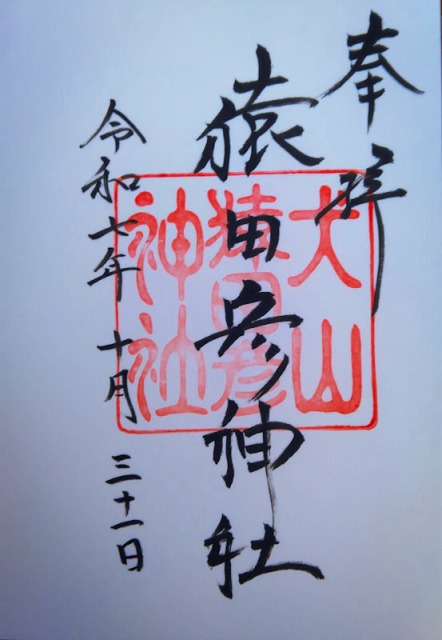 奉拝
猿田彦神社
令和七年 十月 三十一日
犬山
猿田彦
神社